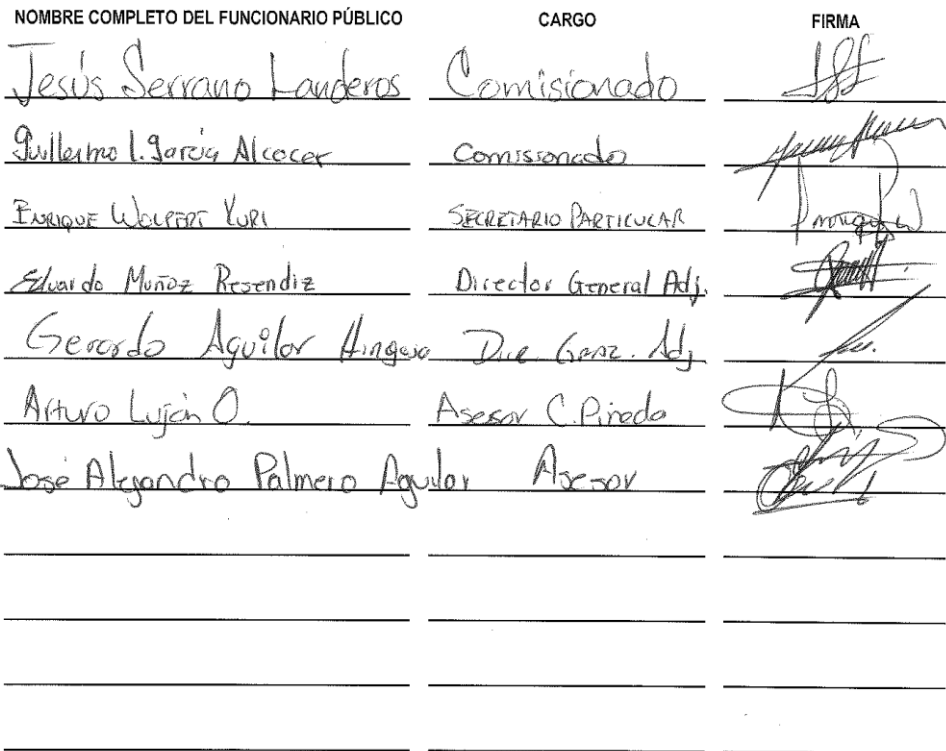 NOMBRE COMPLETO DEL FUNCIONARIO PÚBLICO CARGO FIRMA
Jesús Serrano Landeros Comisionado
Guillermo I. García Alcocer Comisionado
ENRIQUE WOLPERT KURI SECRETARIO PARTICULAR
Eduardo Muñoz Resendiz Director General Adj.
Gerardo Aguilar Adj
Arturo Luján O. Asesor C. Pineda
José Alejandro Palmero Aguilar Asesor